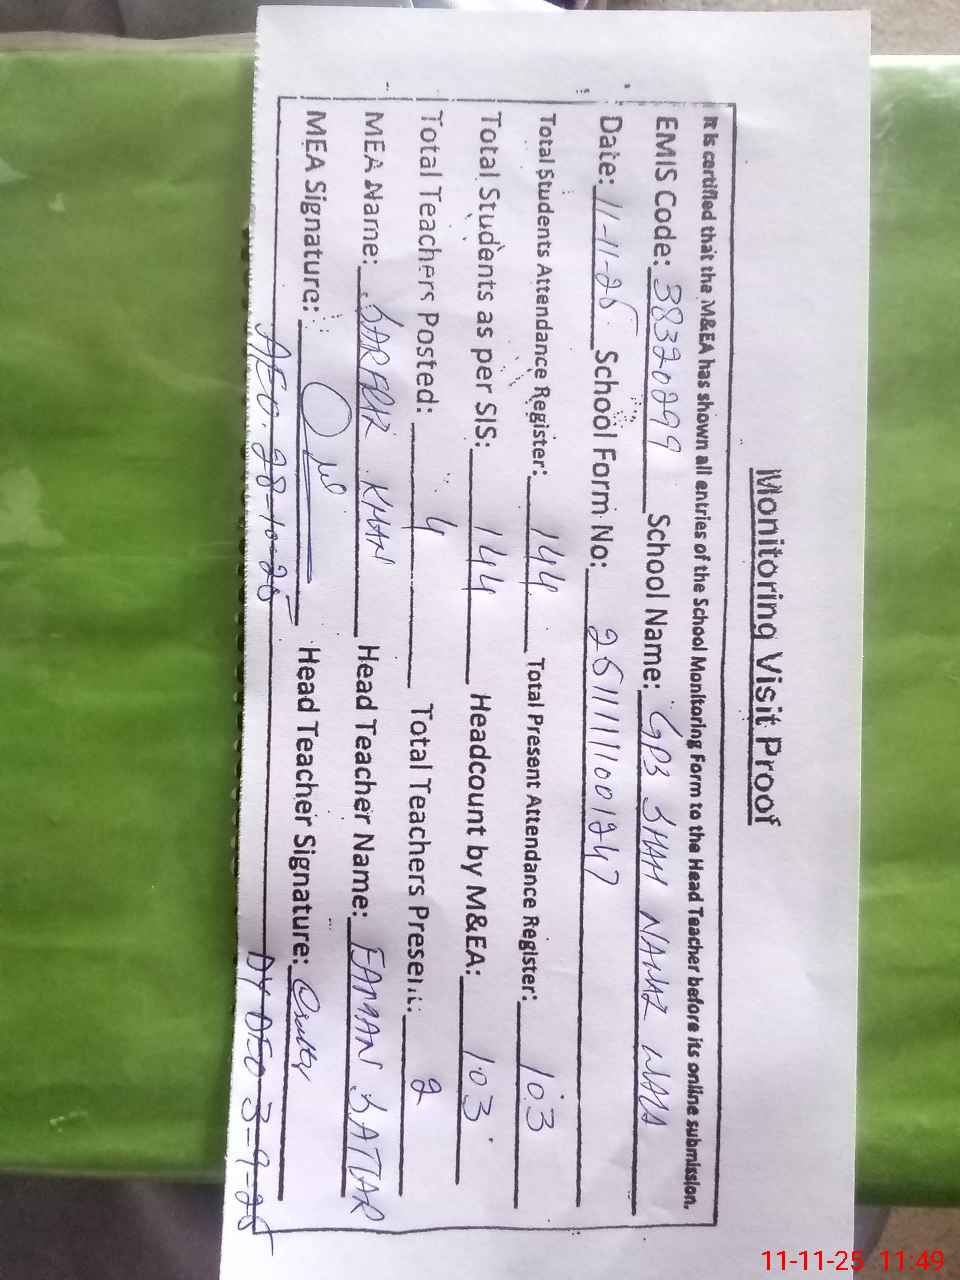 Monitoring Visit Proof
It is certified that the M&EA has shown all entries of the School Monitoring Form to the Head Teacher before its online submission.
EMIS Code: 38320299 School Name: GPS SHAH NAWAZ WALA
Date: 11-11-25 School Form No: 2511111001247
Total Students Attendance Register: 144 Total Present Attendance Register: 103
Total Students as per SIS: 144 Headcount by M&EA: 103
Total Teachers Posted: 4 Total Teachers Present: 2
MEA Name: KHAN Head Teacher Name: SATTAR
MEA Signature: Head Teacher Signature:
AEO. 28-10-25 DY DEO 3-9-25
11-11-25 11:49